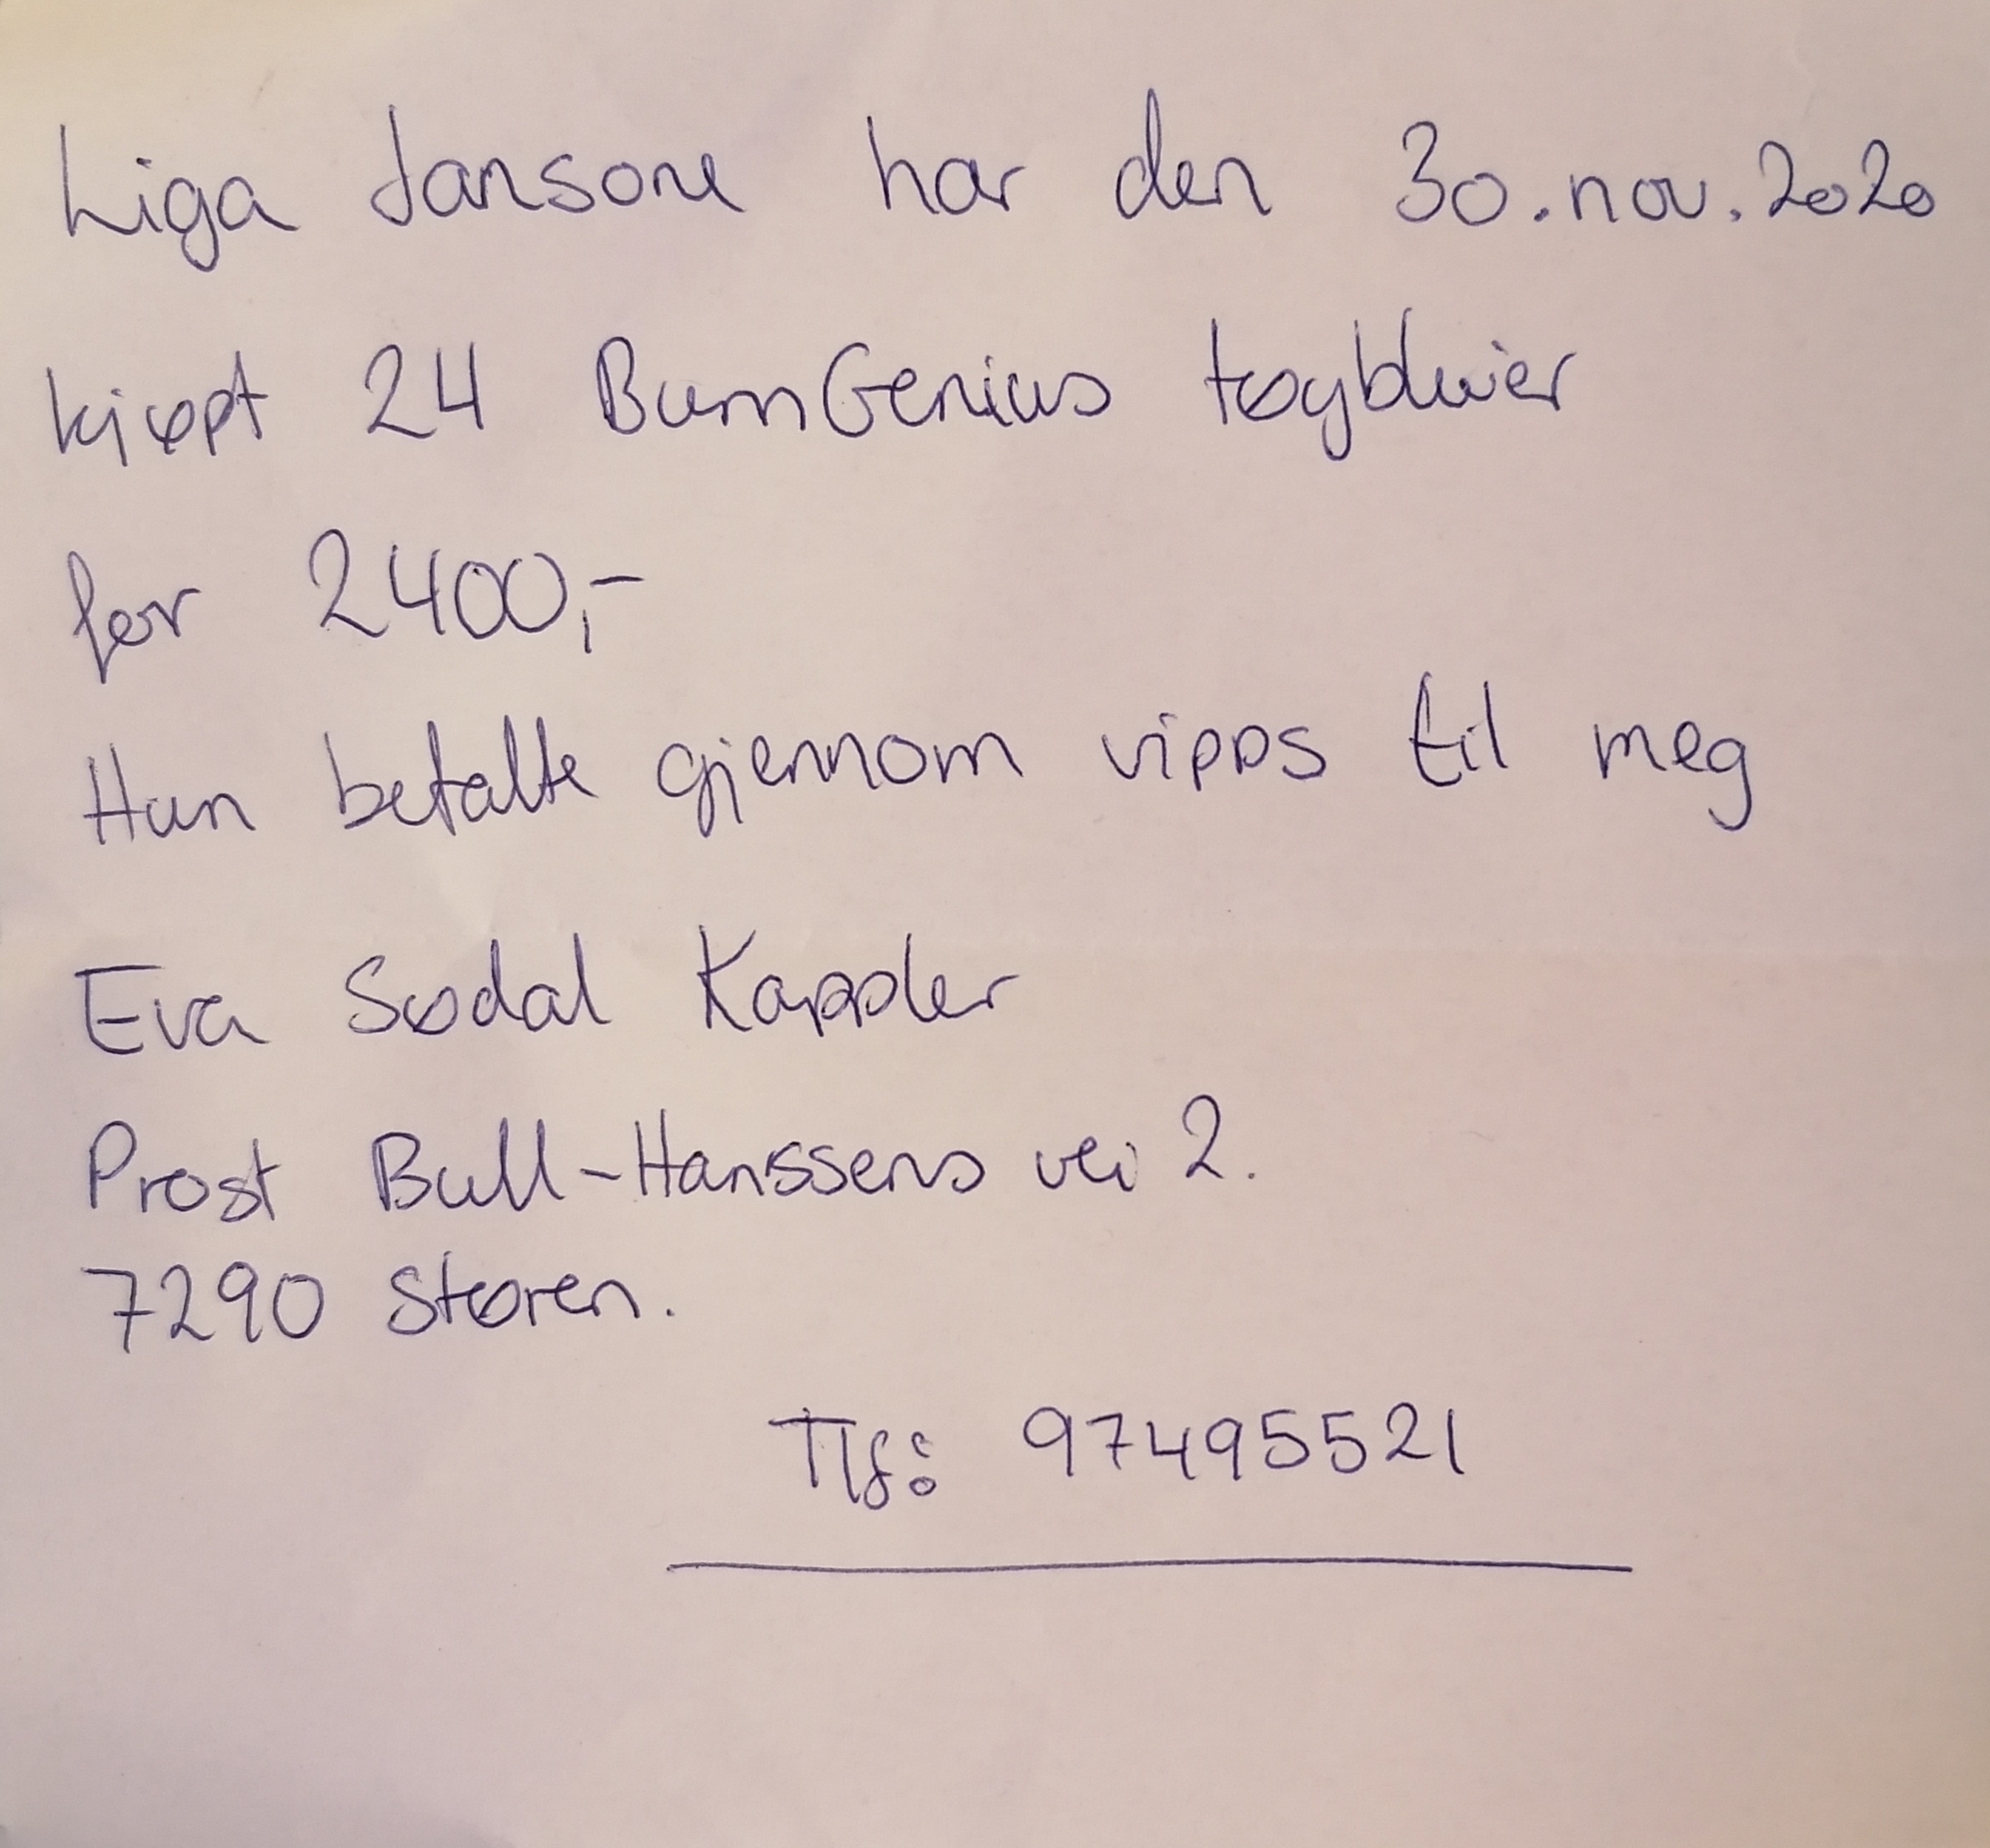 Liga Jansone har den 30.nov.2020
kjøpt 24 BumGenius tøybleier
for 2400,-
Hun betalte gjennom vipps til meg
Eva Sødal Kappler
Prost Bull-Hanssens vei 2.
7290 Støren.
Tlf: 97495521